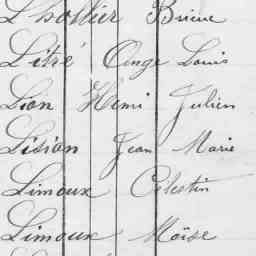 Lhollier Brieue
Litré Ange Louis
Lion Henri Julien
Lision Jean Marie
Limoux Célestin
Limoux Moïse